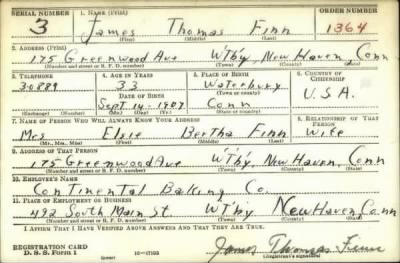 SERIAL NUMBER 1. NAME (Print) ORDER NUMBER
3 James Thomas Finn 1364
(First) (Middle) (Last)
2. ADDRESS (Print)
175 Greenwood Ave Wtby, New Haven, Conn
(Number and street or R. F. D. number) (Town) (County) (State)
3. TELEPHONE 4. AGE IN YEARS 5. PLACE OF BIRTH 6. COUNTRY OF CITIZENSHIP
30889 33 Waterbury
DATE OF BIRTH (Town or county) U.S.A.
Sept. 14-1907 Conn
(Mo.) (Day) (Yr.) (State or country)
7. NAME OF PERSON WHO WILL ALWAYS KNOW YOUR ADDRESS 8. RELATIONSHIP OF THAT PERSON
Mrs Elsie Bertha Finn Wife
(Mr., Mrs., Miss) (First) (Middle) (Last)
9. ADDRESS OF THAT PERSON
175 Greenwood Ave W'T'by, New Haven, Conn
(Number and street or R. F. D. number) (Town) (County) (State)
10. EMPLOYER'S NAME
Continental Baking Co.
11. PLACE OF EMPLOYMENT OR BUSINESS
492 South Main St. WT'by New Haven, Conn
(Number and street or R. F. D. number) (Town) (County) (State)
I AFFIRM THAT I HAVE VERIFIED ABOVE ANSWERS AND THAT THEY ARE TRUE.
REGISTRATION CARD James Thomas Finn
D. S. S. Form 1 (Registrant's signature)